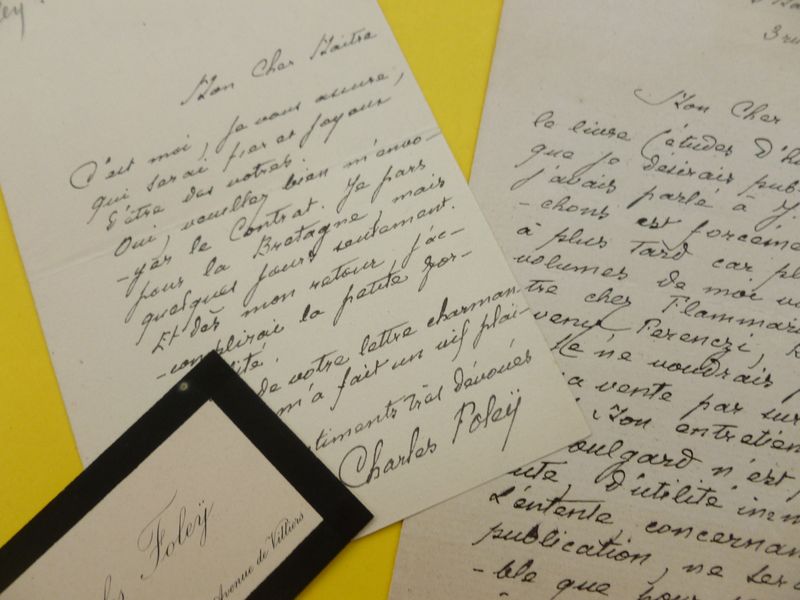 Mon Cher Maitre
C'est moi, je vous assure,
qui serai fier et joyeux
d'être des votres.
Oui, veuillez bien m'envo-
-yer le Contrat. Je pars
pour la Bretagne mais
quelques jours seulement.
Et dès mon retour, j'ac-
-complirai la petite for-
de votre lettre charman
m'a fait un vif plai-
timents très dévoués
Charles Foleÿ
Foleÿ
Avenue de Villiers
Mon Cher
le livre (études d'h
que je désirais pub
j'avais parlé à
-chons est forcéme
à plus tard car pl
volumes de moi v
tre chez Flammar
venir Ferenczi,
Je ne voudrais
a vente par sur
Mon entretien
oulgard n'est p
ute, d'utilité imm
L'entente, concernan
publication, ne sera
-ble que pour